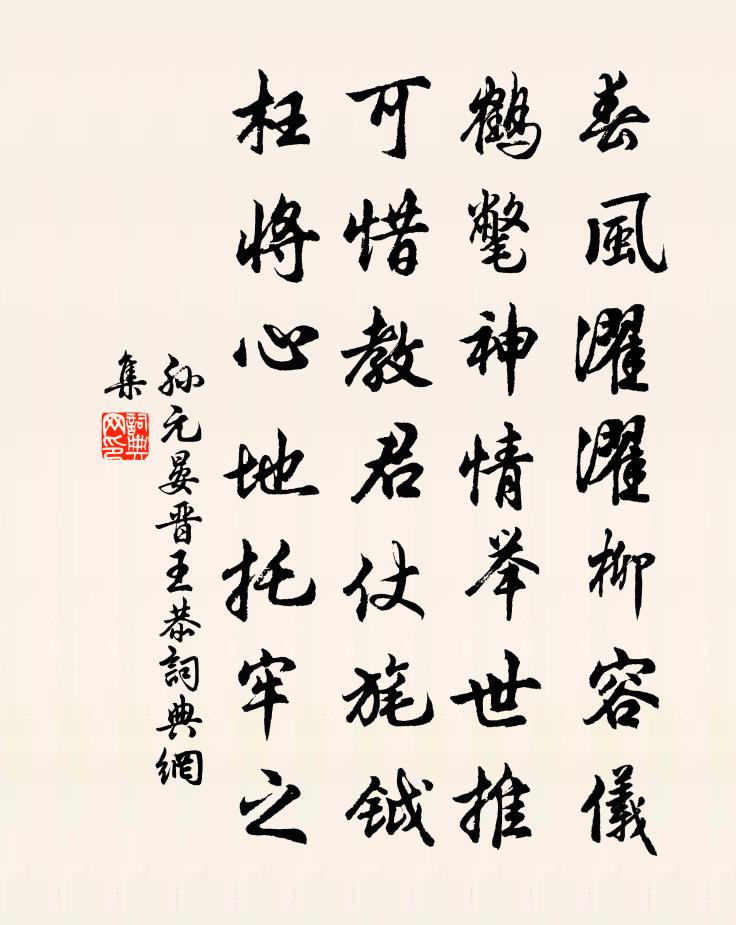 春風濯濯柳容儀
鶴氅神情举世推
可惜教君仗旄鉞
枉將心地托牢之
孙元晏晋王恭詞典網
集
詞典网印